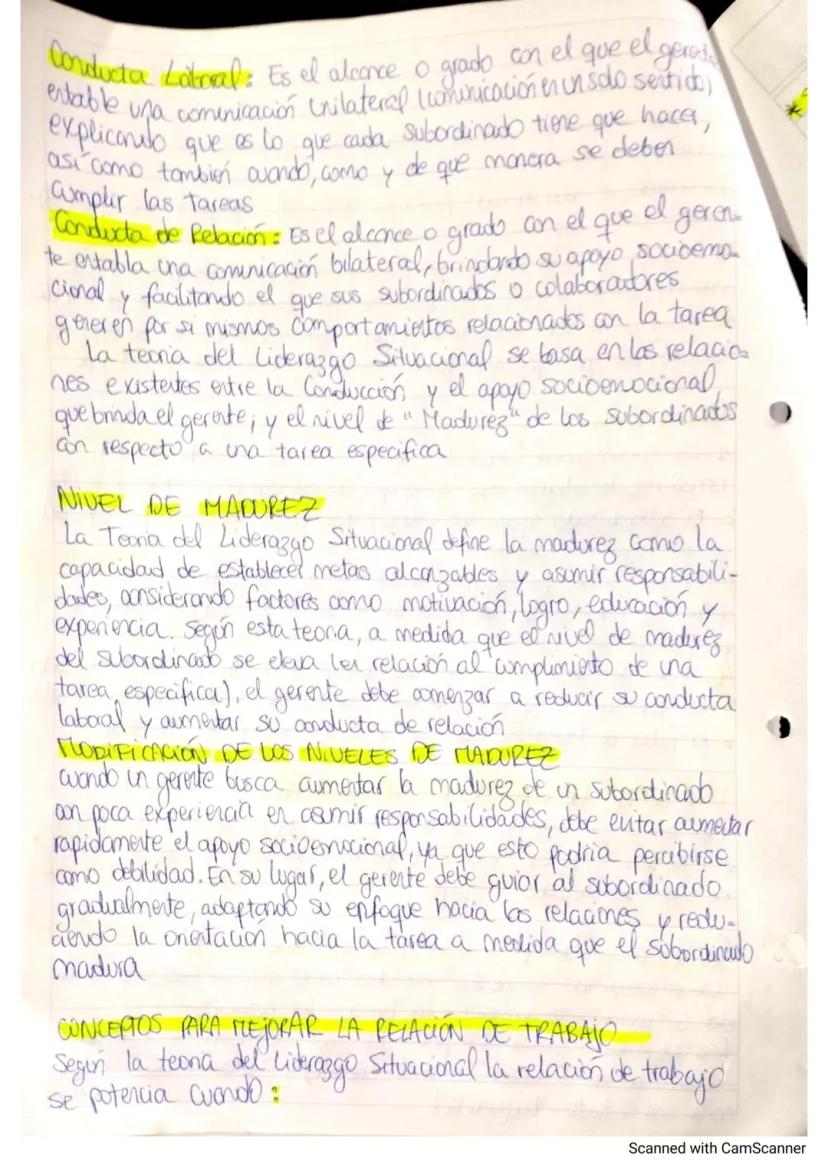 Conducta Laboral: Es el alcance o grado con el que el gerente
entable una comunicación Unilateral (comunicación en un solo sentido)
explicando que es lo que cada subordinado tiene que hacer,
así como también cuando, como y de que manera se deben
cumplir las tareas
Conducta de Relación: Es el alcance o grado con el que el geren-
te entabla una comunicación bilateral, brindando su apoyo socioemo-
cional y facilitando el que sus subordinados o colaboradores
generen por si mismos comportamientos relacionados con la tarea
La teoria del Liderazgo Situacional se basa en las relacio-
nes existentes entre la Conducción y el apoyo socioemocional
que brinda el gerente; y el nivel de "Madurez" de los subordinados
con respecto a una tarea especifica
NIVEL DE MADUREZ
La Teoria del Liderazgo Situacional define la madurez como la
capacidad de establecer metas alcanzables y asumir responsabili-
dades, considerando factores como motivación, logro, educación y
experiencia. Según esta teoria, a medida que el nivel de madurez
del subordinado se eleva (en relación al cumplimiento de una
tarea especifica), el gerente debe comenzar a reducir su conducta
laboral y aumentar su conducta de relación
MODIFICACIÓN DE LOS NIVELES DE MADUREZ
Cuando un gerente busca aumentar la madurez de un subordinado
con poca experiencia en asumir responsabilidades, debe evitar aumentar
rapidamente el apoyo socioemocional, ya que esto podria percibirse
como debilidad. En su lugar, el gerente debe guiar al subordinado
gradualmente, adaptando su enfoque hacia las relaciones y redu-
ciendo la orientación hacia la tarea a medida que el subordinado
madura
CONCEPTOS PARA MEJORAR LA RELACIÓN DE TRABAJO
Según la teoria del Liderazgo Situacional la relación de trabajo
se potencia cuando:
Scanned with CamScanner